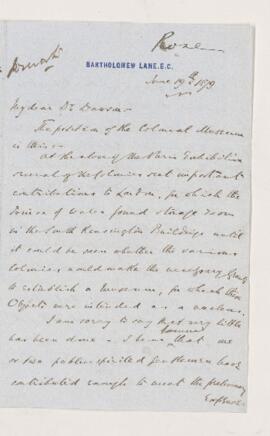 Rose
BARTHOLOMEW LANE, E.C.
June 19th 1879
My dear Dr Dawson
The position of the Colonial Museum
is this :
At the close of the Paris Exhibition
several of the Colonies sent important
contributions to London, for which the
Prince of Wales found storage room
in the South Kensington Buildings until
it could be seen whether the various
Colonies would make the necessary
to establish a Museum, for which these
Objects were intended as a nucleus.
I am sorry to say that very little
has been done. I however that one
or two public spirited gentlemen have
contributed enough to meet the preliminary
Expenses